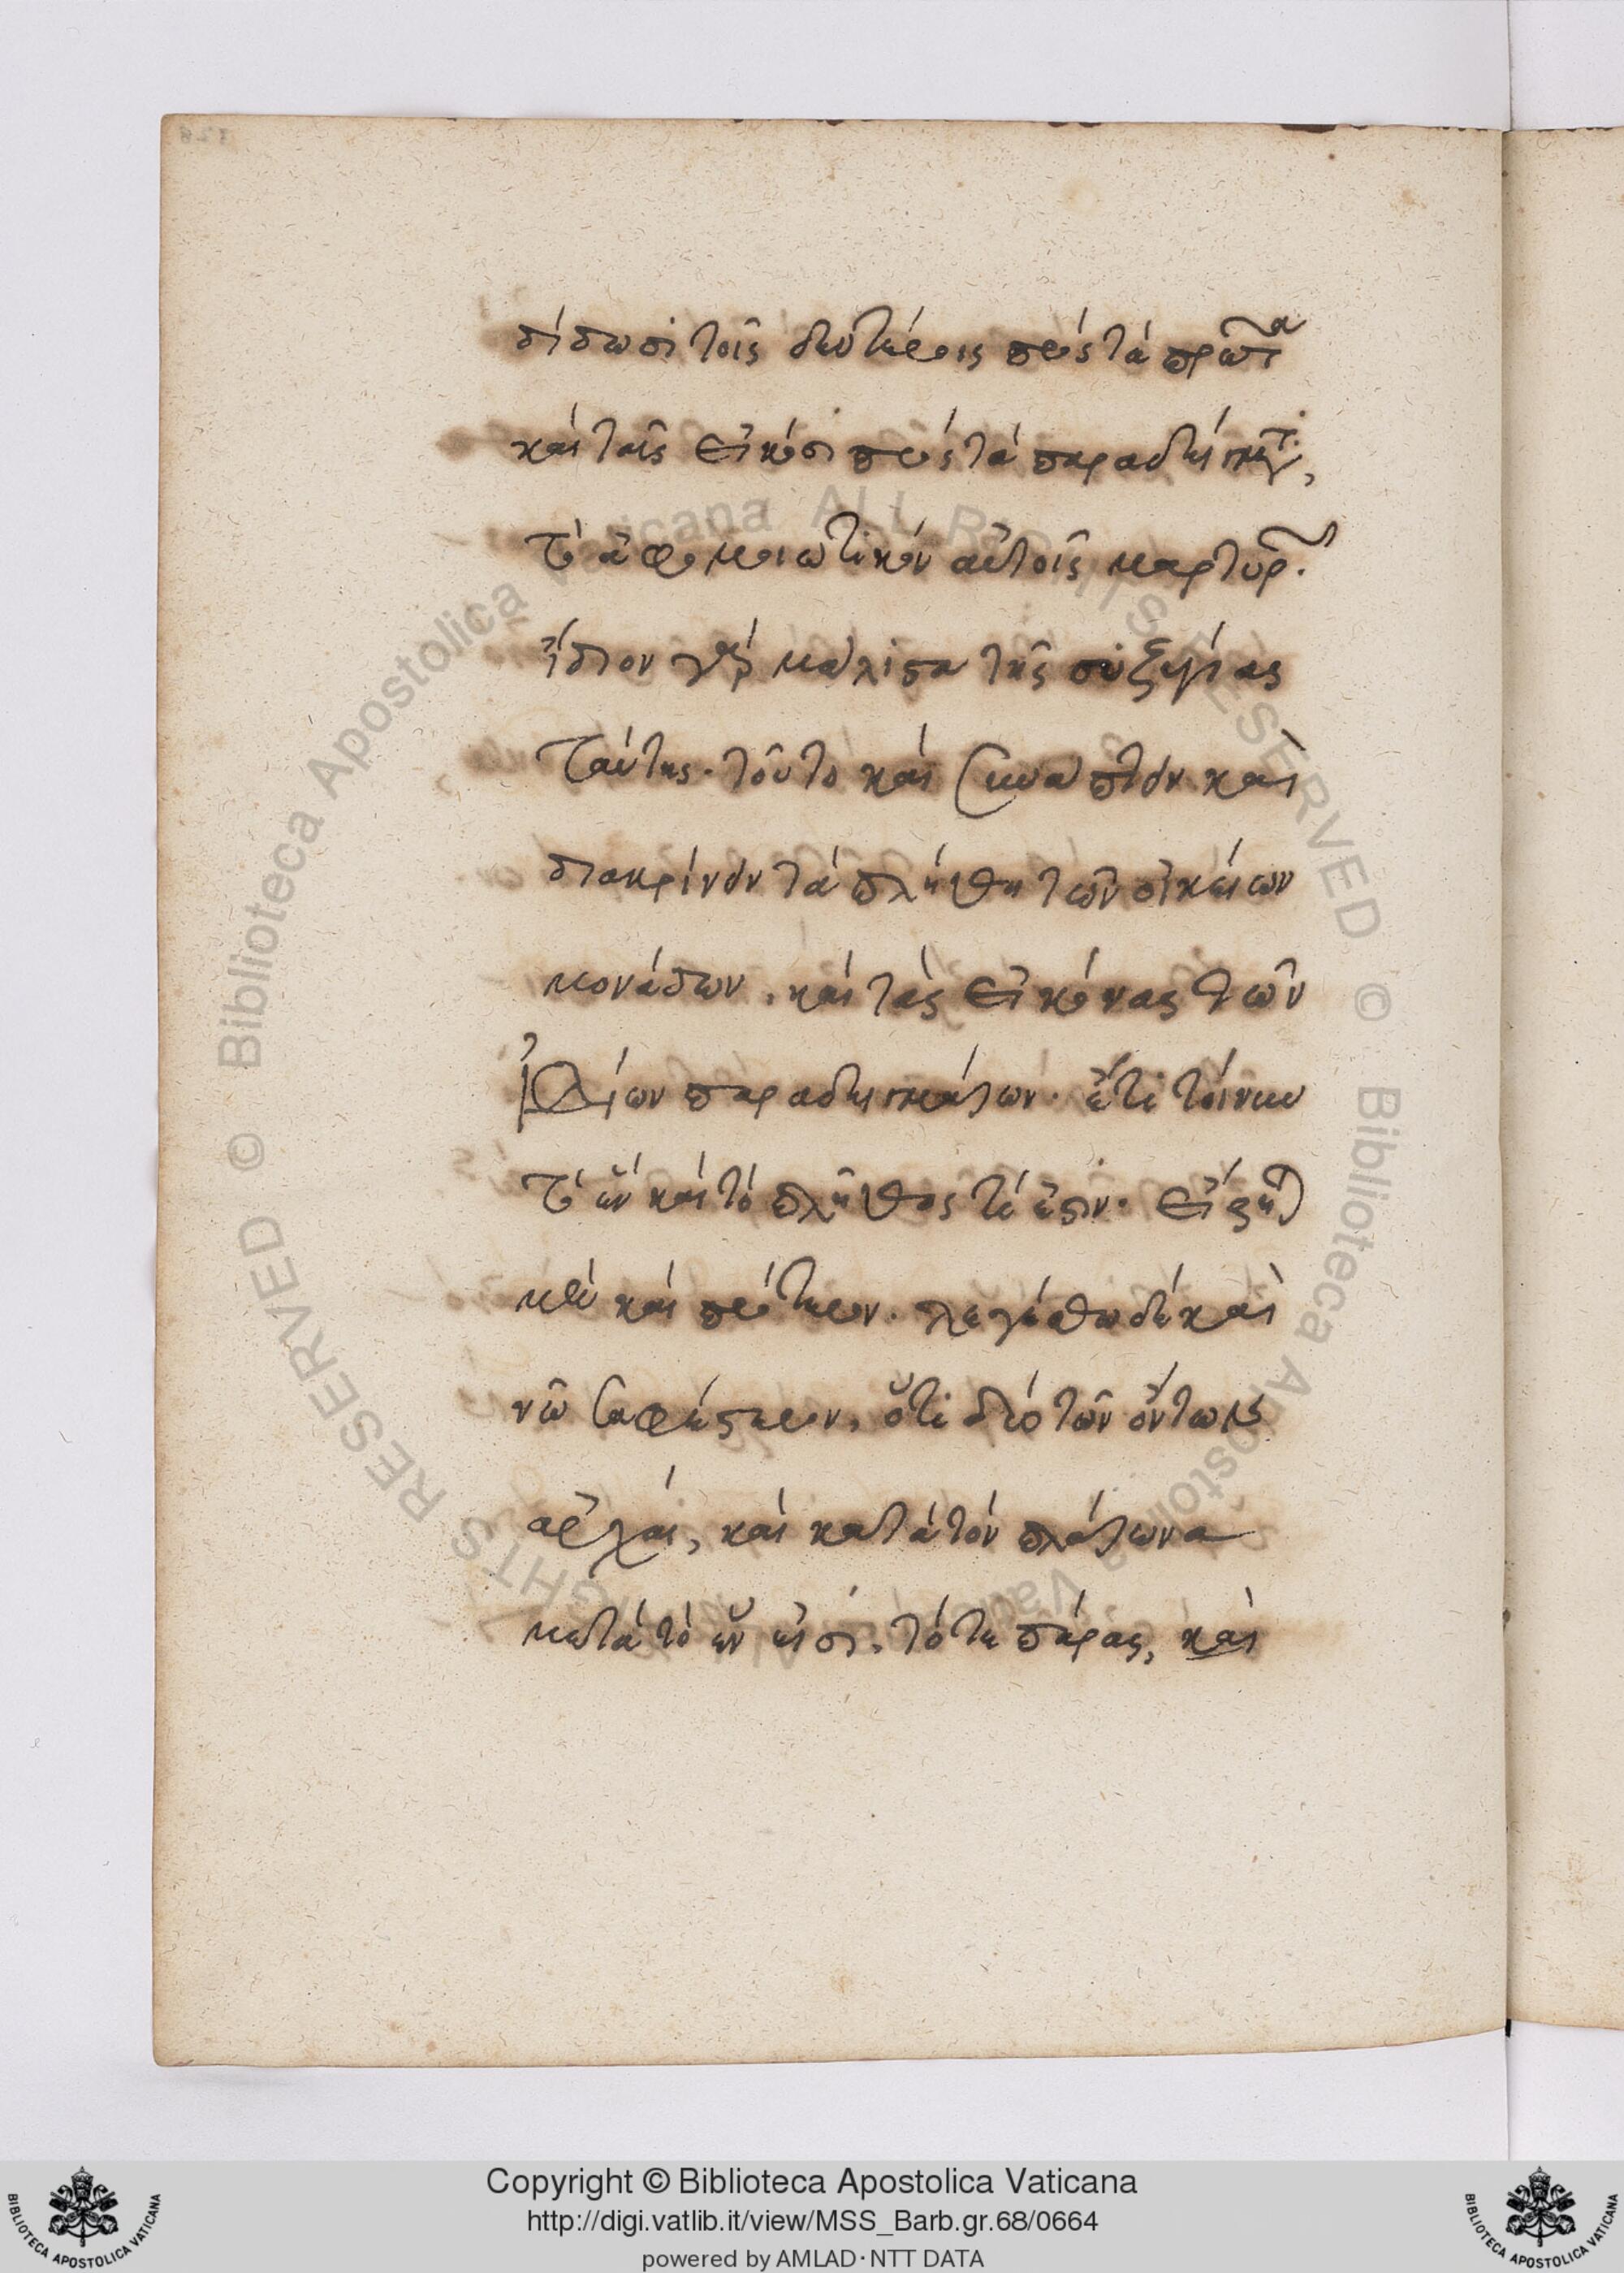 δίδωσι τοῖς δευτέροις πρὸς τὰ πρῶτα
καὶ ταῖς εἰκόσι πρὸς τὰ παραδείγματ,
τὸ ἀφομοιωτικὸν αὐτοῖς μαρτυρ.
ἴδιον γὰρ μάλιστα τῆς συζυγίας
ταύτης. τοῦτο καὶ συνάπτον καὶ
διακρίνον τὰ πλήθη τῶν οἰκείων
μονάδων, καὶ τὰς εἰκόνας τῶν
ἰδίων παραδειγμάτων. ἔτι τοίνυν
τὸ ἓν καὶ τὸ πλῆθος τί ἐστιν. εἴρηται
μὲν καὶ πρότερον. λεγέσθω δὲ καὶ
νῦν σαφέστερον, ὅτι δύο τῶν ὄντων
ἀρχαὶ, καὶ κατὰ τὸν πλάτωνα
μετὰ τὸ ἕν εἰσι. τό τε πέρας, καὶ
Copyright © Biblioteca Apostolica Vaticana
http://digi.vatlib.it/view/MSS_Barb.gr.68/0664
powered by AMLAD·NTT DATA